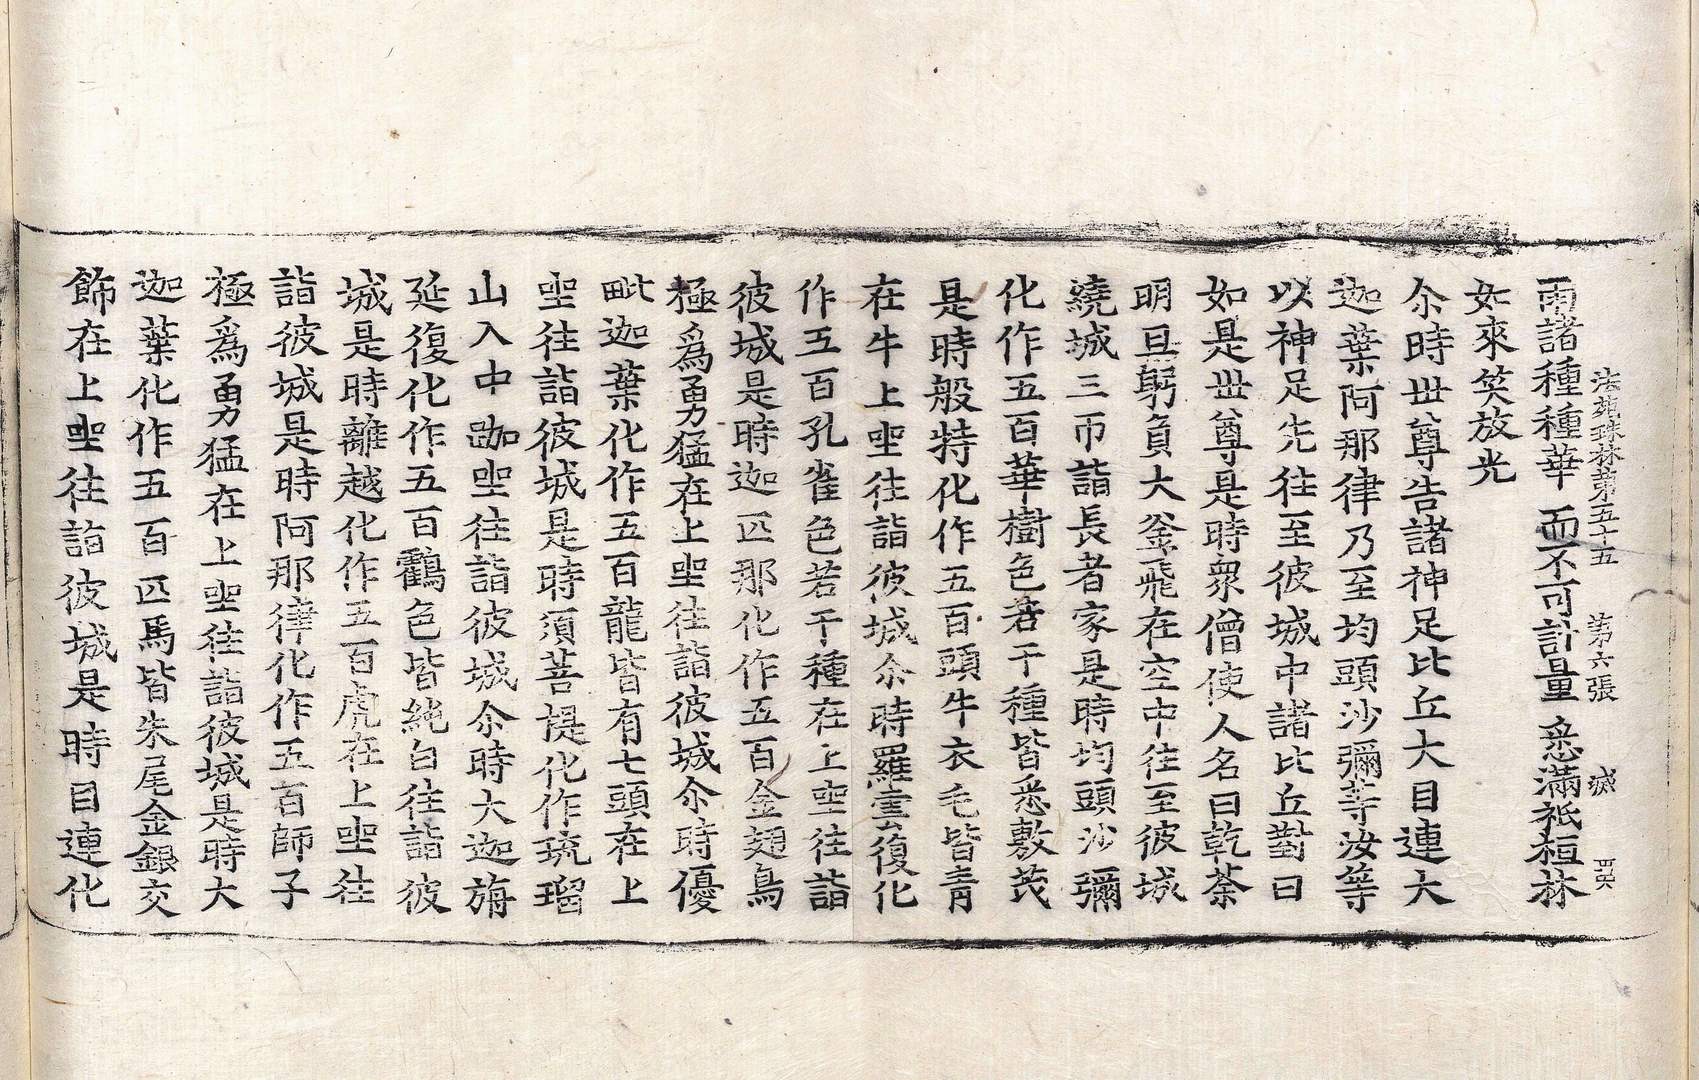 法苑珠林第五十五 第六張
雨諸種種華 而不可計量 悉滿祇桓林
如來笑放光
尒時世尊告諸神足比丘大目連大
迦葉阿那律乃至均頭沙彌等汝等
以神足先往至彼城中諸比丘對曰
如是世尊是時衆僧使人名曰乾荼
明旦躬負大釜飛在空中往至彼城
繞城三帀詣長者家是時均頭沙彌
化作五百華樹色若干種皆悉敷茂
是時般特化作五百頭牛衣毛皆青
在牛上坐往詣彼城尒時羅雲復化
作五百孔雀色若干種在上坐往詣
彼城是時迦匹那化作五百金翅鳥
極爲勇猛在上坐往詣彼城尒時優
毗迦葉化作五百龍皆有七頭在上
坐往詣彼城是時須菩提化作琉璃
山入中跏坐往詣彼城尒時大迦旃
延復化作五百鶴色皆純白往詣彼
城是時離越化作五百虎在上坐往
詣彼城是時阿那律化作五百師子
極爲勇猛在上坐往詣彼城是時大
迦葉化作五百匹馬皆朱尾金銀交
飾在上坐往詣彼城是時目連化